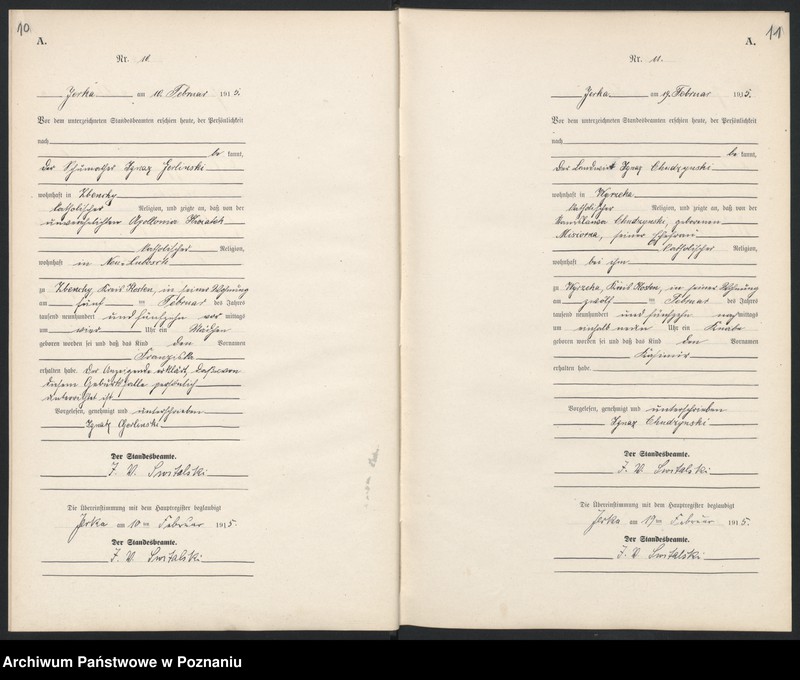 10
A.
Nr. 10.
Jerka am 10. Februar 1915.
Vor dem unterzeichneten Standesbeamten erschien heute, der Persönlichkeit
nach
be kannt,
der Schumacher Ignaz Gorlinski
wohnhaft in Zbenchy
katholischer Religion, und zeigte an, daß von der
unverehelichten Apollonia
katholischer Religion,
wohnhaft in Neu-Lubosch
zu Zbenchy, Kreis Kosten, in seiner Wohnung
am fünf ten Februar des Jahres
tausend neunhundert und fünfzehn vor mittags
um vier Uhr ein Mädchen
geboren worden sei und daß das Kind den Vornamen
Franziska
erhalten habe. Der Anzeigende erklärt, daß er von
diesem Geburtsfalle persönlich
unterrichtet ist.
Vorgelesen, genehmigt und unterschrieben
Ignatz Gorlinski
Der Standesbeamte.
J. V. Switalski
Die Übereinstimmung mit dem Hauptregister beglaubigt
Jerka am 10ten Februar 1915.
Der Standesbeamte.
J. V. Switalski
11
A.
Nr. 11.
Jerka am 19. Februar 1915.
Vor dem unterzeichneten Standesbeamten erschien heute, der Persönlichkeit
nach
be kannt,
der Landwirt Ignaz Chudzynski
wohnhaft in Wyrzeka
katholischer Religion, und zeigte an, daß von der
Stanislawa Chudzynski, geborenen
Misiorna, seiner Ehefrau
katholischer Religion,
wohnhaft bei ihm
zu Wyrzeka, Kreis Kosten, in seiner Wohnung
am zwölf ten Februar des Jahres
tausend neunhundert und fünfzehn nach mittags
um einhalb neun Uhr ein Knabe
geboren worden sei und daß das Kind den Vornamen
Kasimir
erhalten habe.
Vorgelesen, genehmigt und unterschrieben
Ignaz Chudzynski
Der Standesbeamte.
J. V. Switalski
Die Übereinstimmung mit dem Hauptregister beglaubigt
Jerka am 19ten Februar 1915.
Der Standesbeamte.
J. V. Switalski
Archiwum Państwowe w Poznaniu